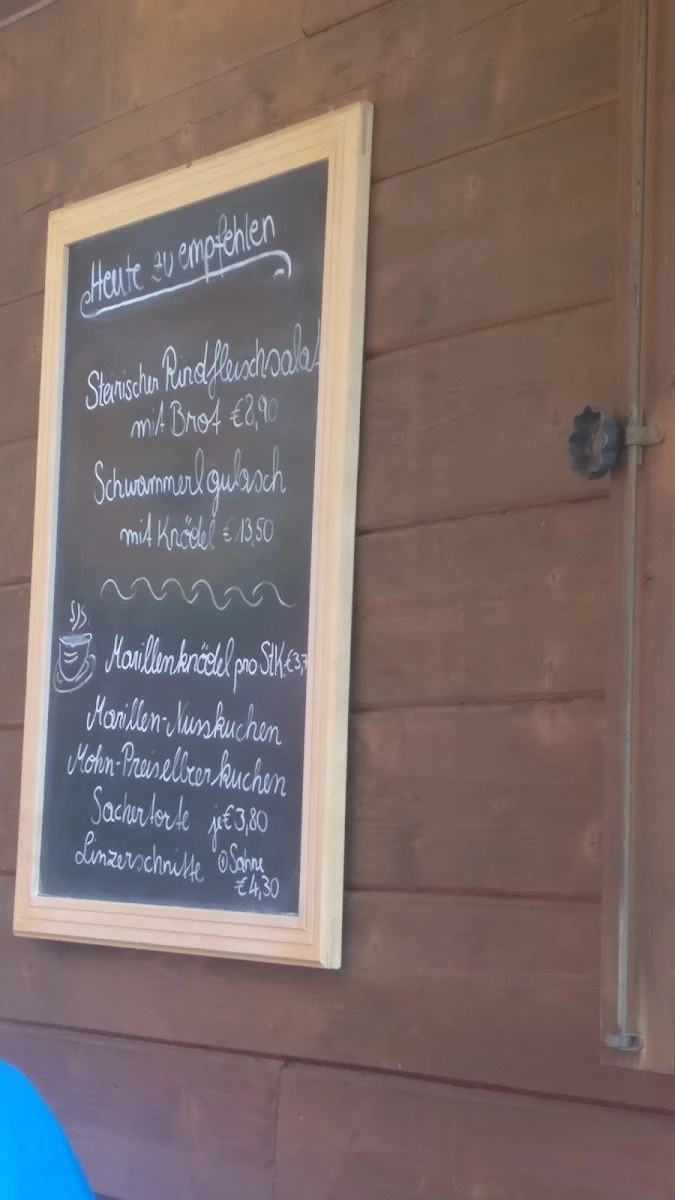 Heute zu empfehlen
Steirischer Rindfleischsalat
mit Brot €8,90
Schwammerlgulasch
mit Knödel €13,50
Marillenknödel pro Stk. €3,7
Marillen-Nusskuchen
Mohn-Preiselbeerkuchen
Sachertorte je €3,80
Linzerschnitte + Sahne
€4,30